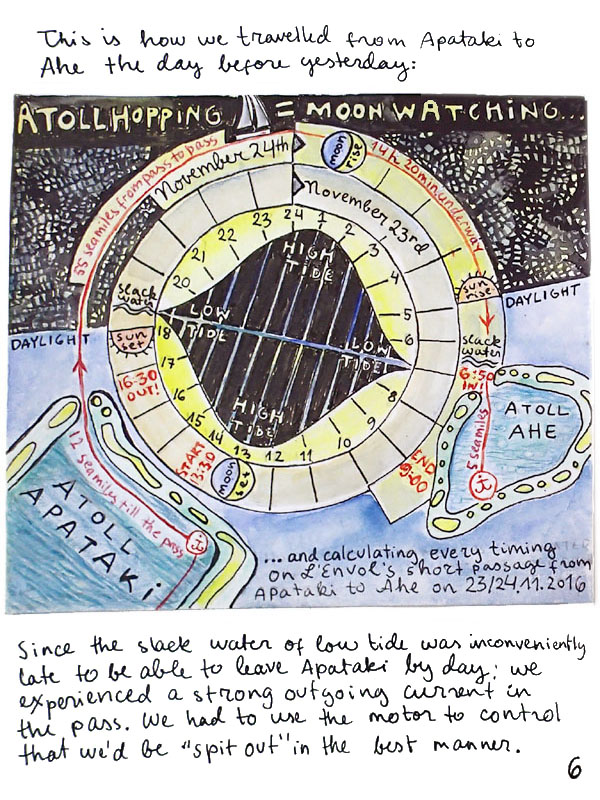 This is how we travelled from Apataki to
Ahe the day before yesterday:
ATOLLHOPPING = MOON WATCHING...
55 seamiles from pass to pass
November 24th
moon rise
14h 20min underway
November 23rd
24
1
2
3
4
5
6
8
9
10
11
12
13
14
15
16
17
18
20
21
22
23
HIGH
TIDE
LOW
TIDE
LOW
TIDE
HIGH
TIDE
slack
water
DAYLIGHT
sun
set
16:30
OUT!
START
13:30
moon
set
sun
rise
DAYLIGHT
slack
water
6:50
IN!
5 seamiles
END
9:00
ATOLL
AHE
12 seamiles till the pass
ATOLL
APATAKI
...and calculating every timing
on L'Envol's short passage from
Apataki to Ahe on 23/24.11.2016
Since the slack water of low tide was inconveniently
late to be able to leave Apataki by day; we
experienced a strong outgoing current in
the pass. We had to use the motor to control
that we'd be "spit out" in the best manner.
6